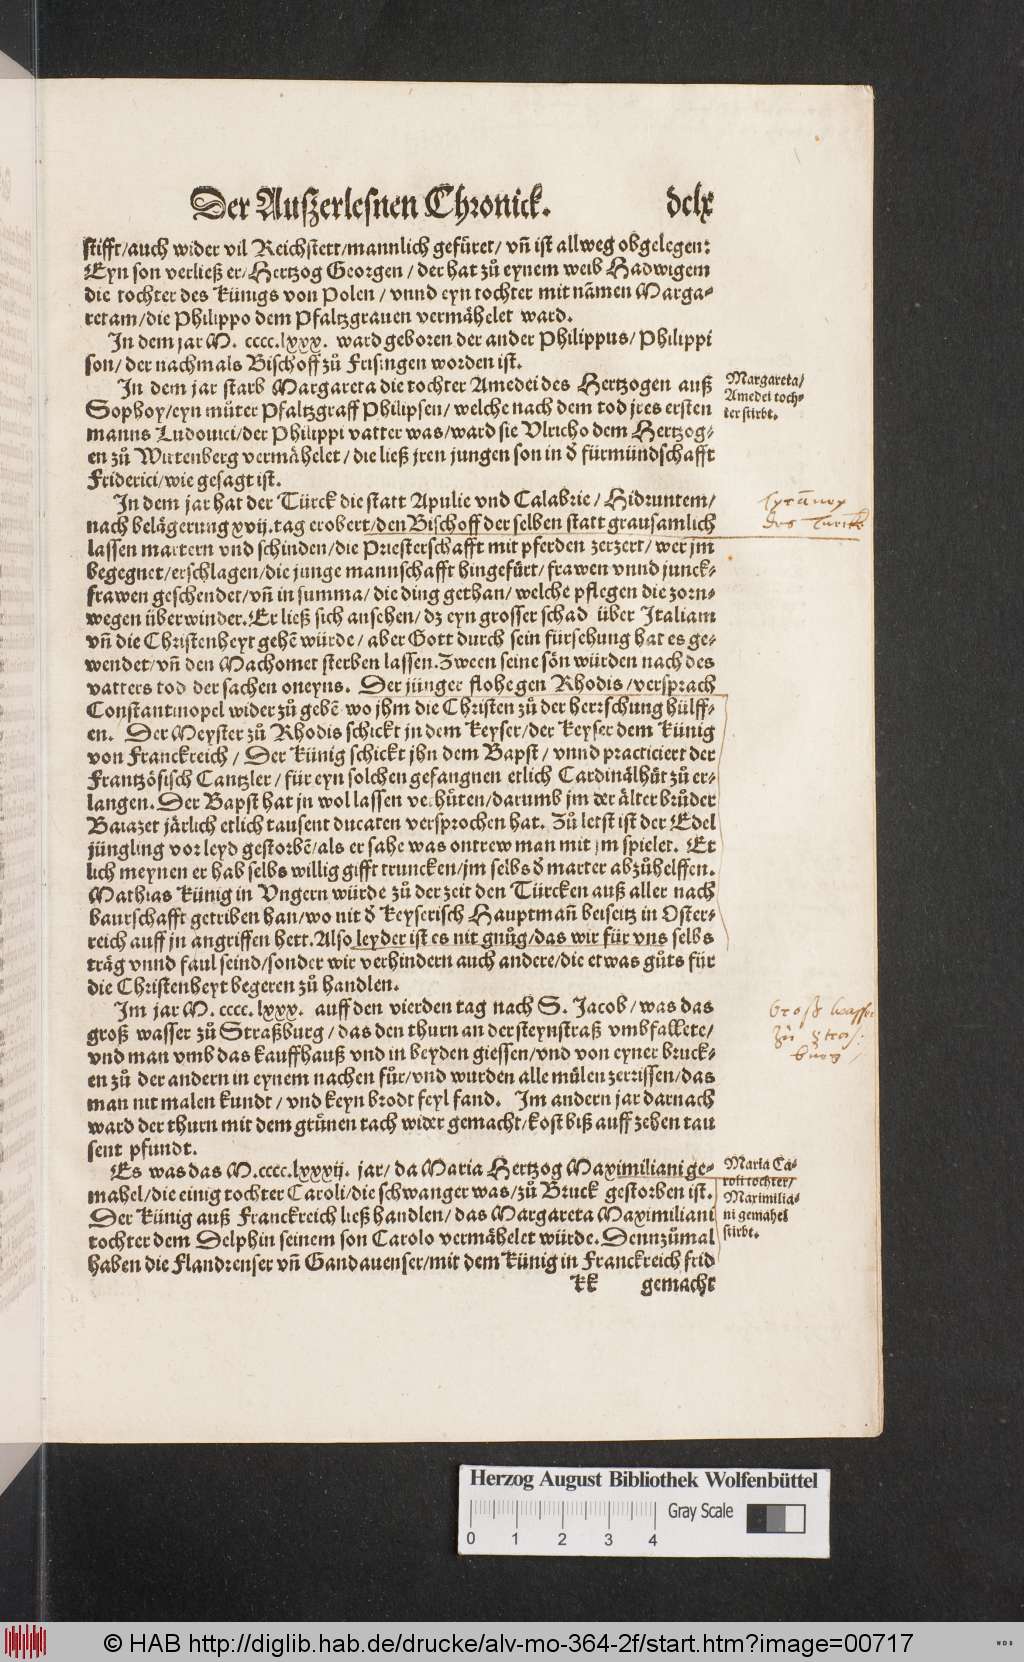 Der Außerlesnen Chronick. dclx
stifft/auch wider vil Reichstett/mannlich gefüret/ vñ ist allweg obgelegen:
Eyn son verließ er/Hertzog Georgen/der hat zů eynem weib Hadwigem
die tochter des Künigs von Polen/vnnd eyn tochter mit nãmen Marga-
retam/die Philippo dem Pfaltzgrauen vermähelet ward.
In dem jar M. cccc.lxxx. ward geboren der ander Philippus/Philippi
son/der nachmals Bischoff zů Frisingen worden ist.
In dem jar starb Margareta die tochter Amedei des Hertzogen auß
Sophoy/eyn můter Pfaltzgraff Philipsen/welche nach dem tod jres ersten
manns Ludouici/der Philippi vatter was/ward sie Vlricho dem Hertzog-
en zů Wirtenberg vermähelet/die ließ jren jungen son in d̕ fürmündschafft
Friderici/wie gesagt ist.
Margareta/
Amedei toch-
ter stirbt.
In dem jar hat der Türck die statt Apulie vnd Calabrie/Hidruntem/
nach belägerung xvij.tag erobert/den Bischoff der selben statt grausamlich
lassen martern vnd schinden/die Priesterschafft mit pferden zerzert/wer jm
begegnet/erschlagen/die junge mannschafft hingefürt/frawen vnnd junck-
frawen geschendet/vñ in summa/die ding gethan/welche pflegen die zorn-
wegen überwinder.Er ließ sich ansehen/dz eyn grosser schad über Italiam
vñ die Christenheyt gehẽ würde/aber Gott durch sein fürsehung hat es ge-
wendet/vñ den Machomet sterben lassen.Zween seine sön würden nach des
vatters tod der sachen oneyns. Der jünger flohe gen Rhodis/versprach
Constantinopel wider zů gebẽ wo jhm die Christen zů der herrschung hülff-
en. Der Meyster zů Rhodis schickt jn dem Keyser/der Keyser dem Künig
von Franckreich/Der Künig schickt jhn dem Bapst/vnnd practiciert der
Frantzösisch Cantzler/für eyn solchen gefangnen etlich Cardinälhůt zů er-
langen.Der Bapst hat jn wol lassen verhůten/darumb jm der älter brůder
Baiazet järlich etlich tausent ducaten versprochen hat. Zů letst ist der Edel
jüngling vor leyd gestorbẽ/als er sahe was ontrew man mit jm spielet. Et
lich meynen er hab selbs willig gifft truncken/jm selbs d̕ marter abzůhelffen.
Mathias Künig in Vngern würde zů der zeit den Türcken auß aller nach
baurschafft getriben han/wo nit d̕ Keyserisch Hauptmañ beiseitz in Oster-
reich auff jn angriffen hett.Also leyder ist es nit gnůg/das wir für vns selbs
träg vnnd faul seind/sonder wir verhindern auch andere/die etwas gůts für
die Christenheyt begeren zů handlen.
Tyranney
des Türck
Im jar M. cccc. lxxx. auff den vierden tag nach S. Jacob/was das
groß wasser zů Straßburg/das den thurn an der steynstraß vmbfallete/
vnd man vmb das kauffhauß vnd in beyden giessen/vnd von eyner bruck-
en zů der andern in eynem nachen fůr/vnd wurden alle mülen zerrissen/das
man nit malen kundt/vnd keyn brodt feyl fand. Im andern jar darnach
ward der thurn mit dem grůnen tach wider gemacht/kost biß auff zehen tau
sent pfundt.
Groß wasser
zů Stras-
burg
Es was das M.cccc.lxxxij. jar/da Maria Hertzog Maximiliani ge-
mahel/die einig tochter Caroli/die schwanger was/zů Bruck gestorben ist.
Der Künig auß Franckreich ließ handlen/das Margareta Maximiliani
tochter dem Delphin seinem son Carolo vermähelet würde. Dennzůmal
haben die Flandrenser vñ Gandauenser/mit dem Künig in Franckreich frid
Maria Ca-
roli tochter/
Maximilia-
ni gemahel
stirbt.
kk gemacht
Herzog August Bibliothek Wolfenbüttel
Gray Scale
0 1 2 3 4
© HAB http://diglib.hab.de/drucke/alv-mo-364-2f/start.htm?image=00717